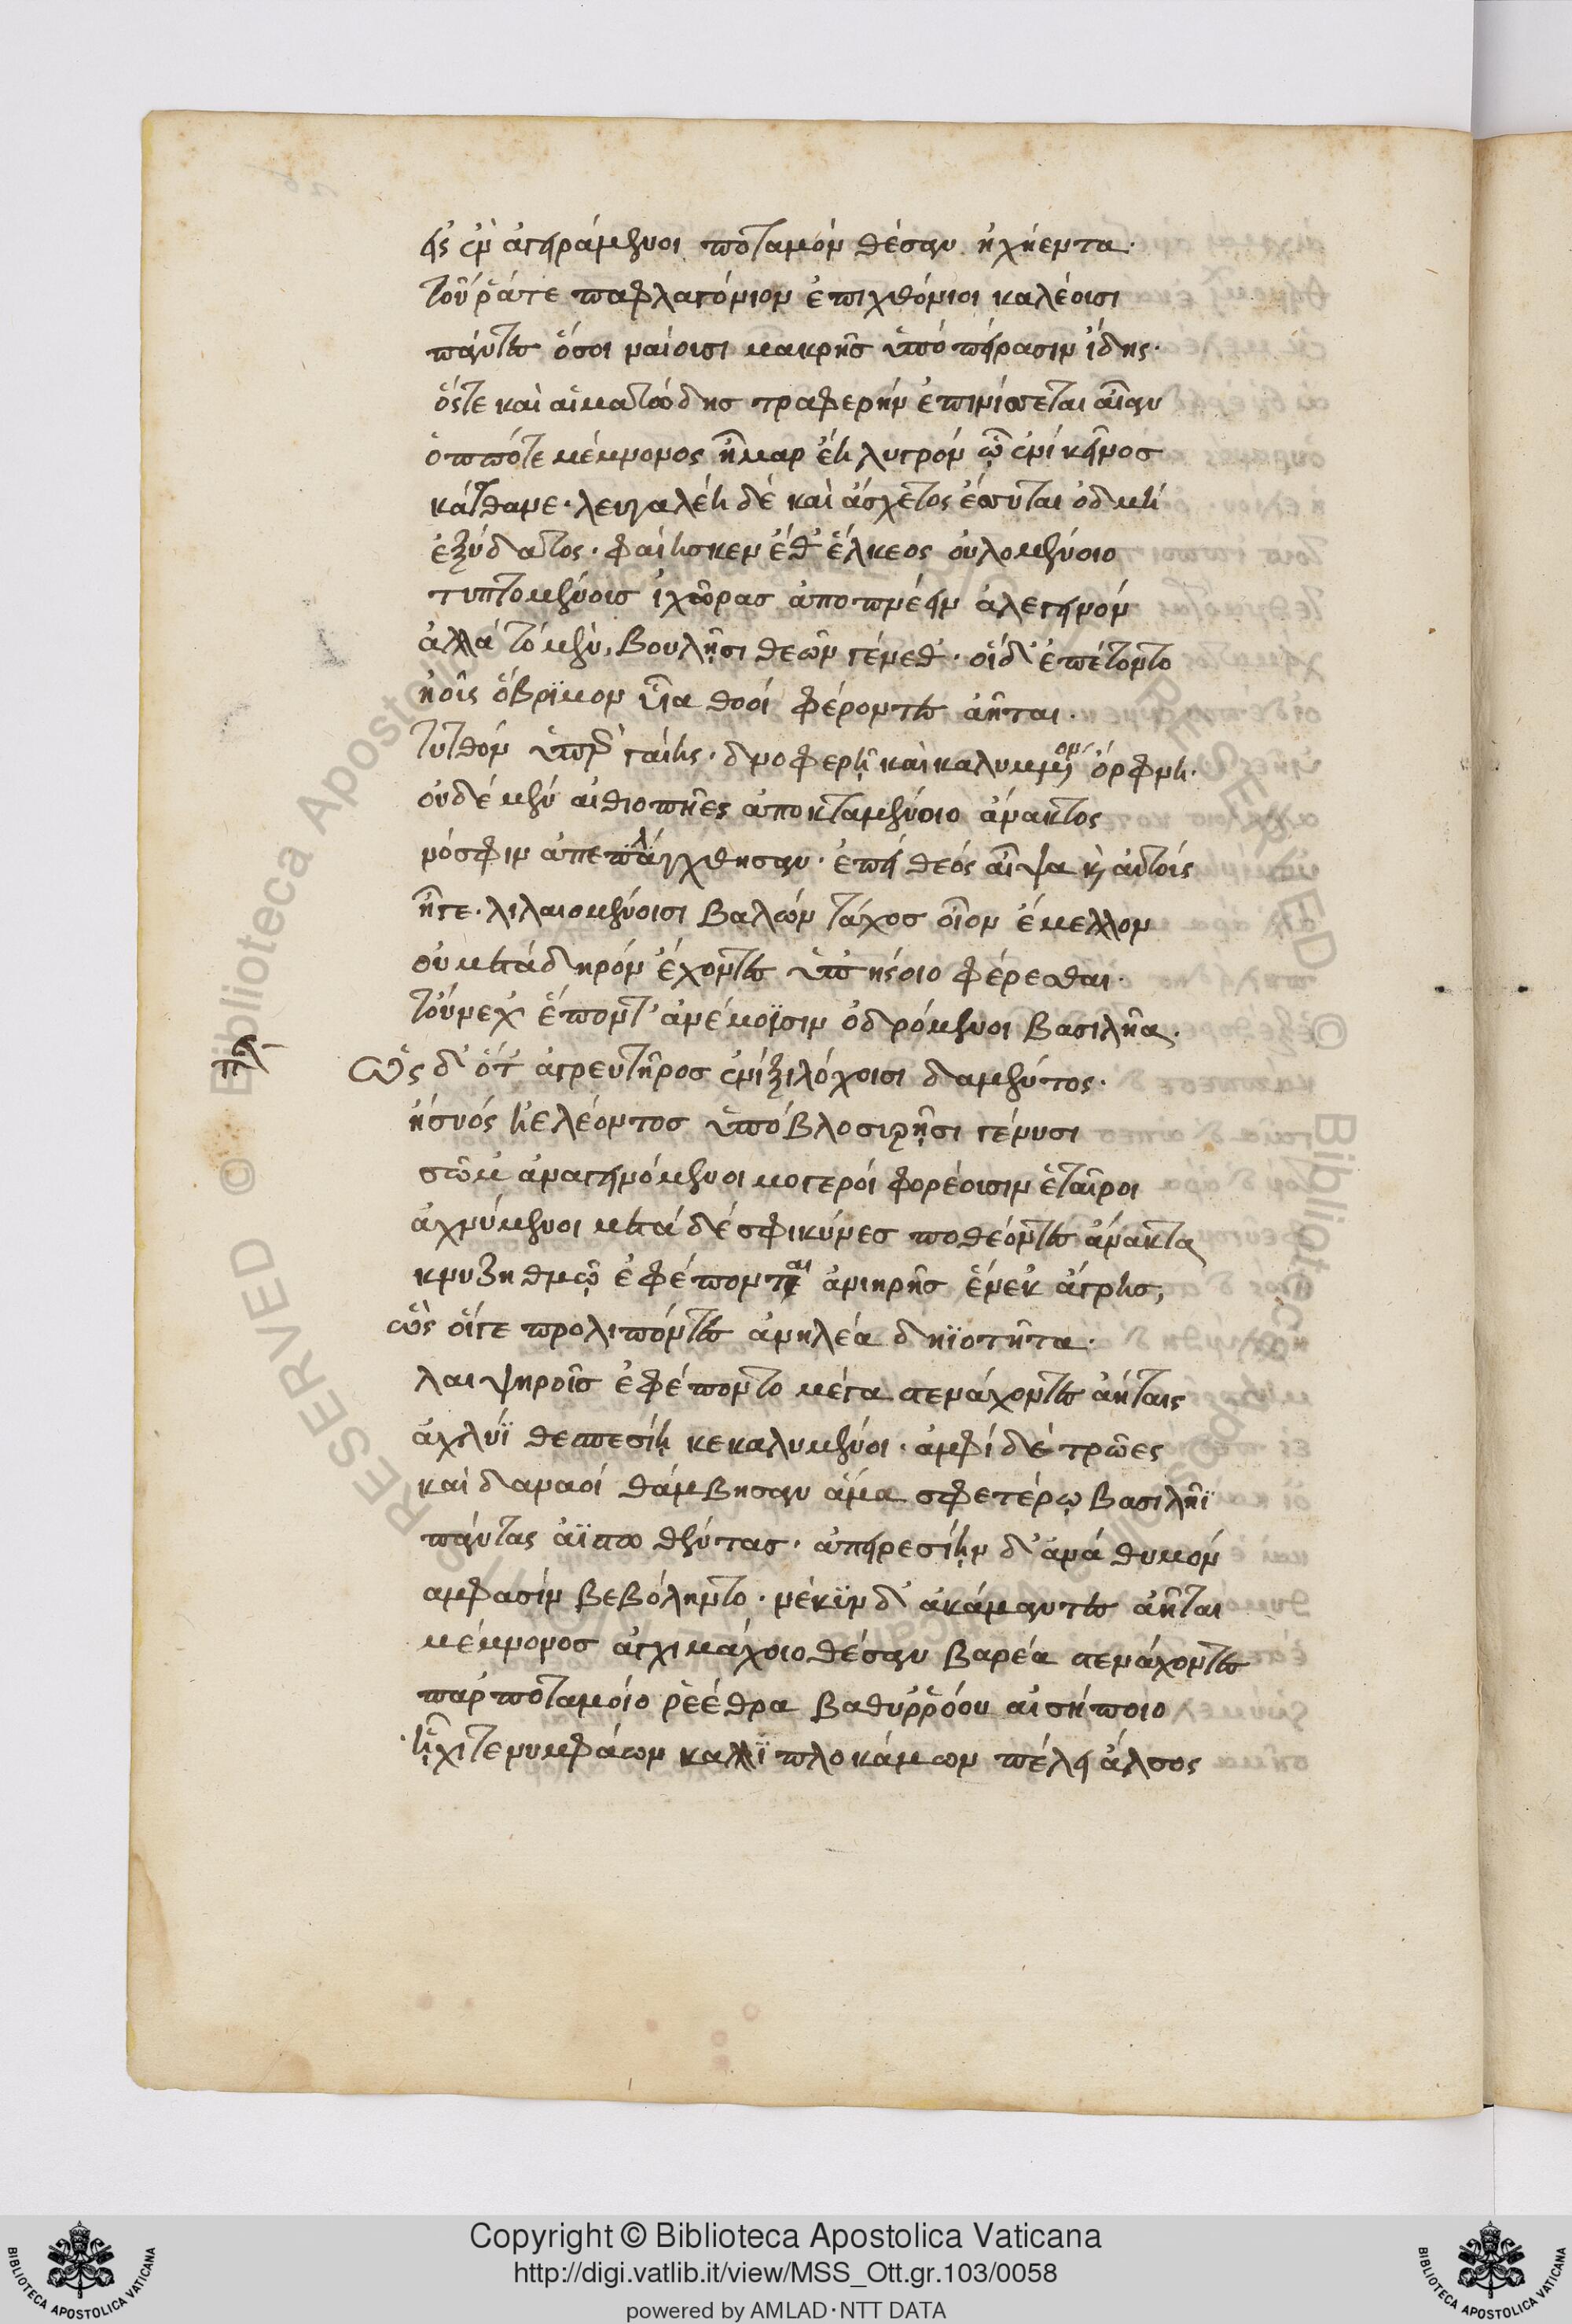 εἰς ἓν ἀγειράμενοι ποταμὸν θέσαν ἠχήεντα·
τοῦ ῥά τε παφλαγόνιον ἐπιχθόνιοι καλέουσι
πάντες ὅσοι ναίουσι μακρῆς ὑπὸ πείρασιν ἴδης·
ὅς τε καὶ αἱματώδης τραφερὴν ἐπινίσεται αἶαν
ὁππότε μέμνονος ἦμαρ ἔῃ λυγρὸν ᾧ ἐνὶ κεῖνος
κάτθανε· λευγαλέη δὲ καὶ ἄσχετος ἔσσυται ὀδμὴ
ἐξ ὕδατος· φαίης κεν ἔθ' ἕλκεος οὐλομένοιο
τυπτομένοις ἰχῶρας ἀποπνέειν ἀλεγεινόν
ἀλλὰ τὸ μὲν, βουλῇσι θεῶν γένεθ'· οἱ δ' ἐπέτοντο
ἠοῦς ὄβριμον υἷα θοοὶ φέροντες ἀῆται·
τυτθὸν ὑπὲρ γαίης· δνοφερῇ καὶ καλυμμένον ὄρφνῃ·
οὐδὲ μὲν αἰθιοπῆες ἀποκταμένοιο ἄνακτος
νόσφιν ἀπεπλάγχθησαν· ἐπεὶ θεός αἶψα καὶ αὐτοὺς
ἦγε· λιλαιομένοισι βαλὼν τάχος οἷον ἔμελλον
οὐ μετὰ δηρὸν ἔχοντες ὑπ' ἠέροιο φέρεσθαι·
τούνεχ' ἕποντ' ἀνέμοϊσιν ὀδυρόμενοι βασιλῆα·
πλ
ὡς δ' ὅτ' ἀγρευτῆρος ἐνὶ ξυλόχοισι δαμέντος·
ἢ συὸς ἠὲ λέοντος ὑπὸ βλοσυρῇσι γένυσι
σῶμ' ἀναγειρόμενοι μογεροὶ φορέουσιν ἑταῖροι
ἀχνύμενοι μετὰ δέ σφι κύνες ποθέοντες ἄνακτα
κνυζηθμῷ ἐφέπονται ἀνιηρῆς ἕνεκ' ἄγρης,
ὣς οἵ γε προλιπόντες ἀνηλέα δηϊοτῆτα·
λαιψηροῖς ἐφέποντο μέγα στενάχοντες ἀήταις
ἀχλύϊ θεσπεσίῃ κεκαλυμένοι· ἀμφὶ δὲ τρῶες
καὶ δαναοὶ θάμβησαν ἅμα σφετέρῳ βασιλῆϊ
πάντας ἀϊστωθέντας· ἀπειρεσίῃν δ' ἀνὰ θυμόν
ἀμφασίῃ βεβόληντο· νέκυν δ' ἀκάμαντες ἀῆται
μέμνονος ἀγχιμάχοιο θέσαν βαρέα στενάχοντες
παρ ποταμοῖο ῥέεθρα βαθυῤῥόου αἰσήποιο
ᾗχί τε νυμφάων καλλϊπλοκάμων πέλει ἄλσος
Copyright © Biblioteca Apostolica Vaticana
http://digi.vatlib.it/view/MSS_Ott.gr.103/0058
powered by AMLAD·NTT DATA